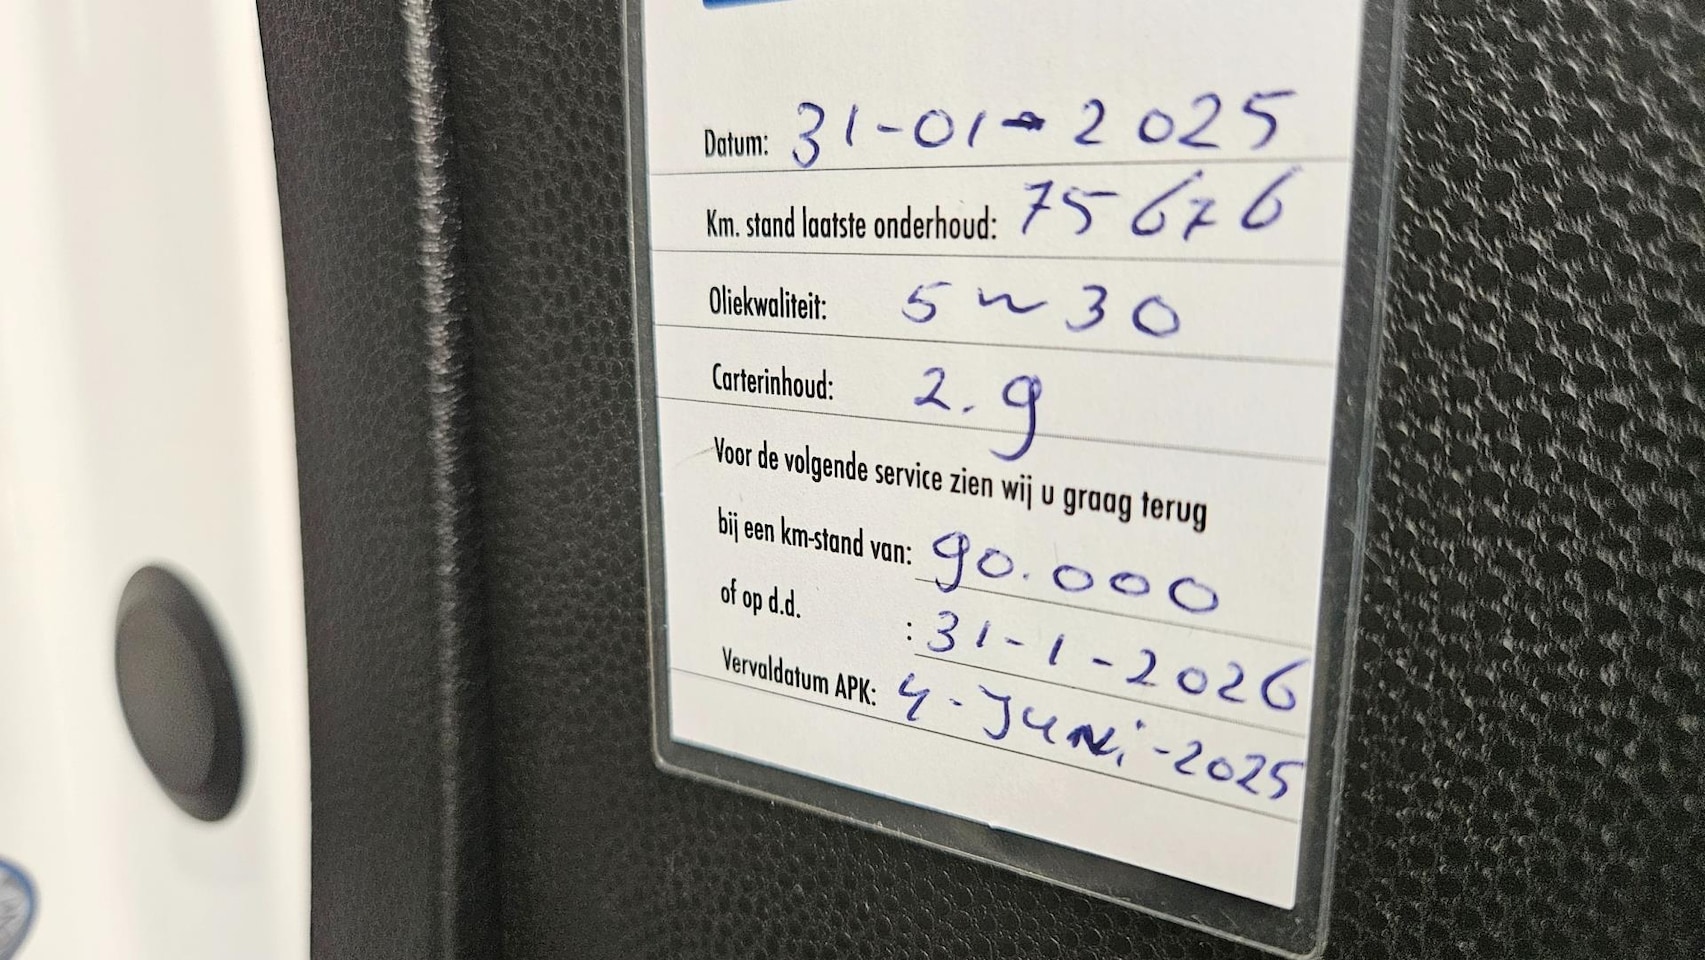 Datum: 31-01-2025
Km. stand laatste onderhoud: 75676
Oliekwaliteit: 5w30
Carterinhoud: 2.9
Voor de volgende service zien wij u graag terug
bij een km-stand van: 90.000
of op d.d. : 31-1-2026
Vervaldatum APK: 4-Juni-2025